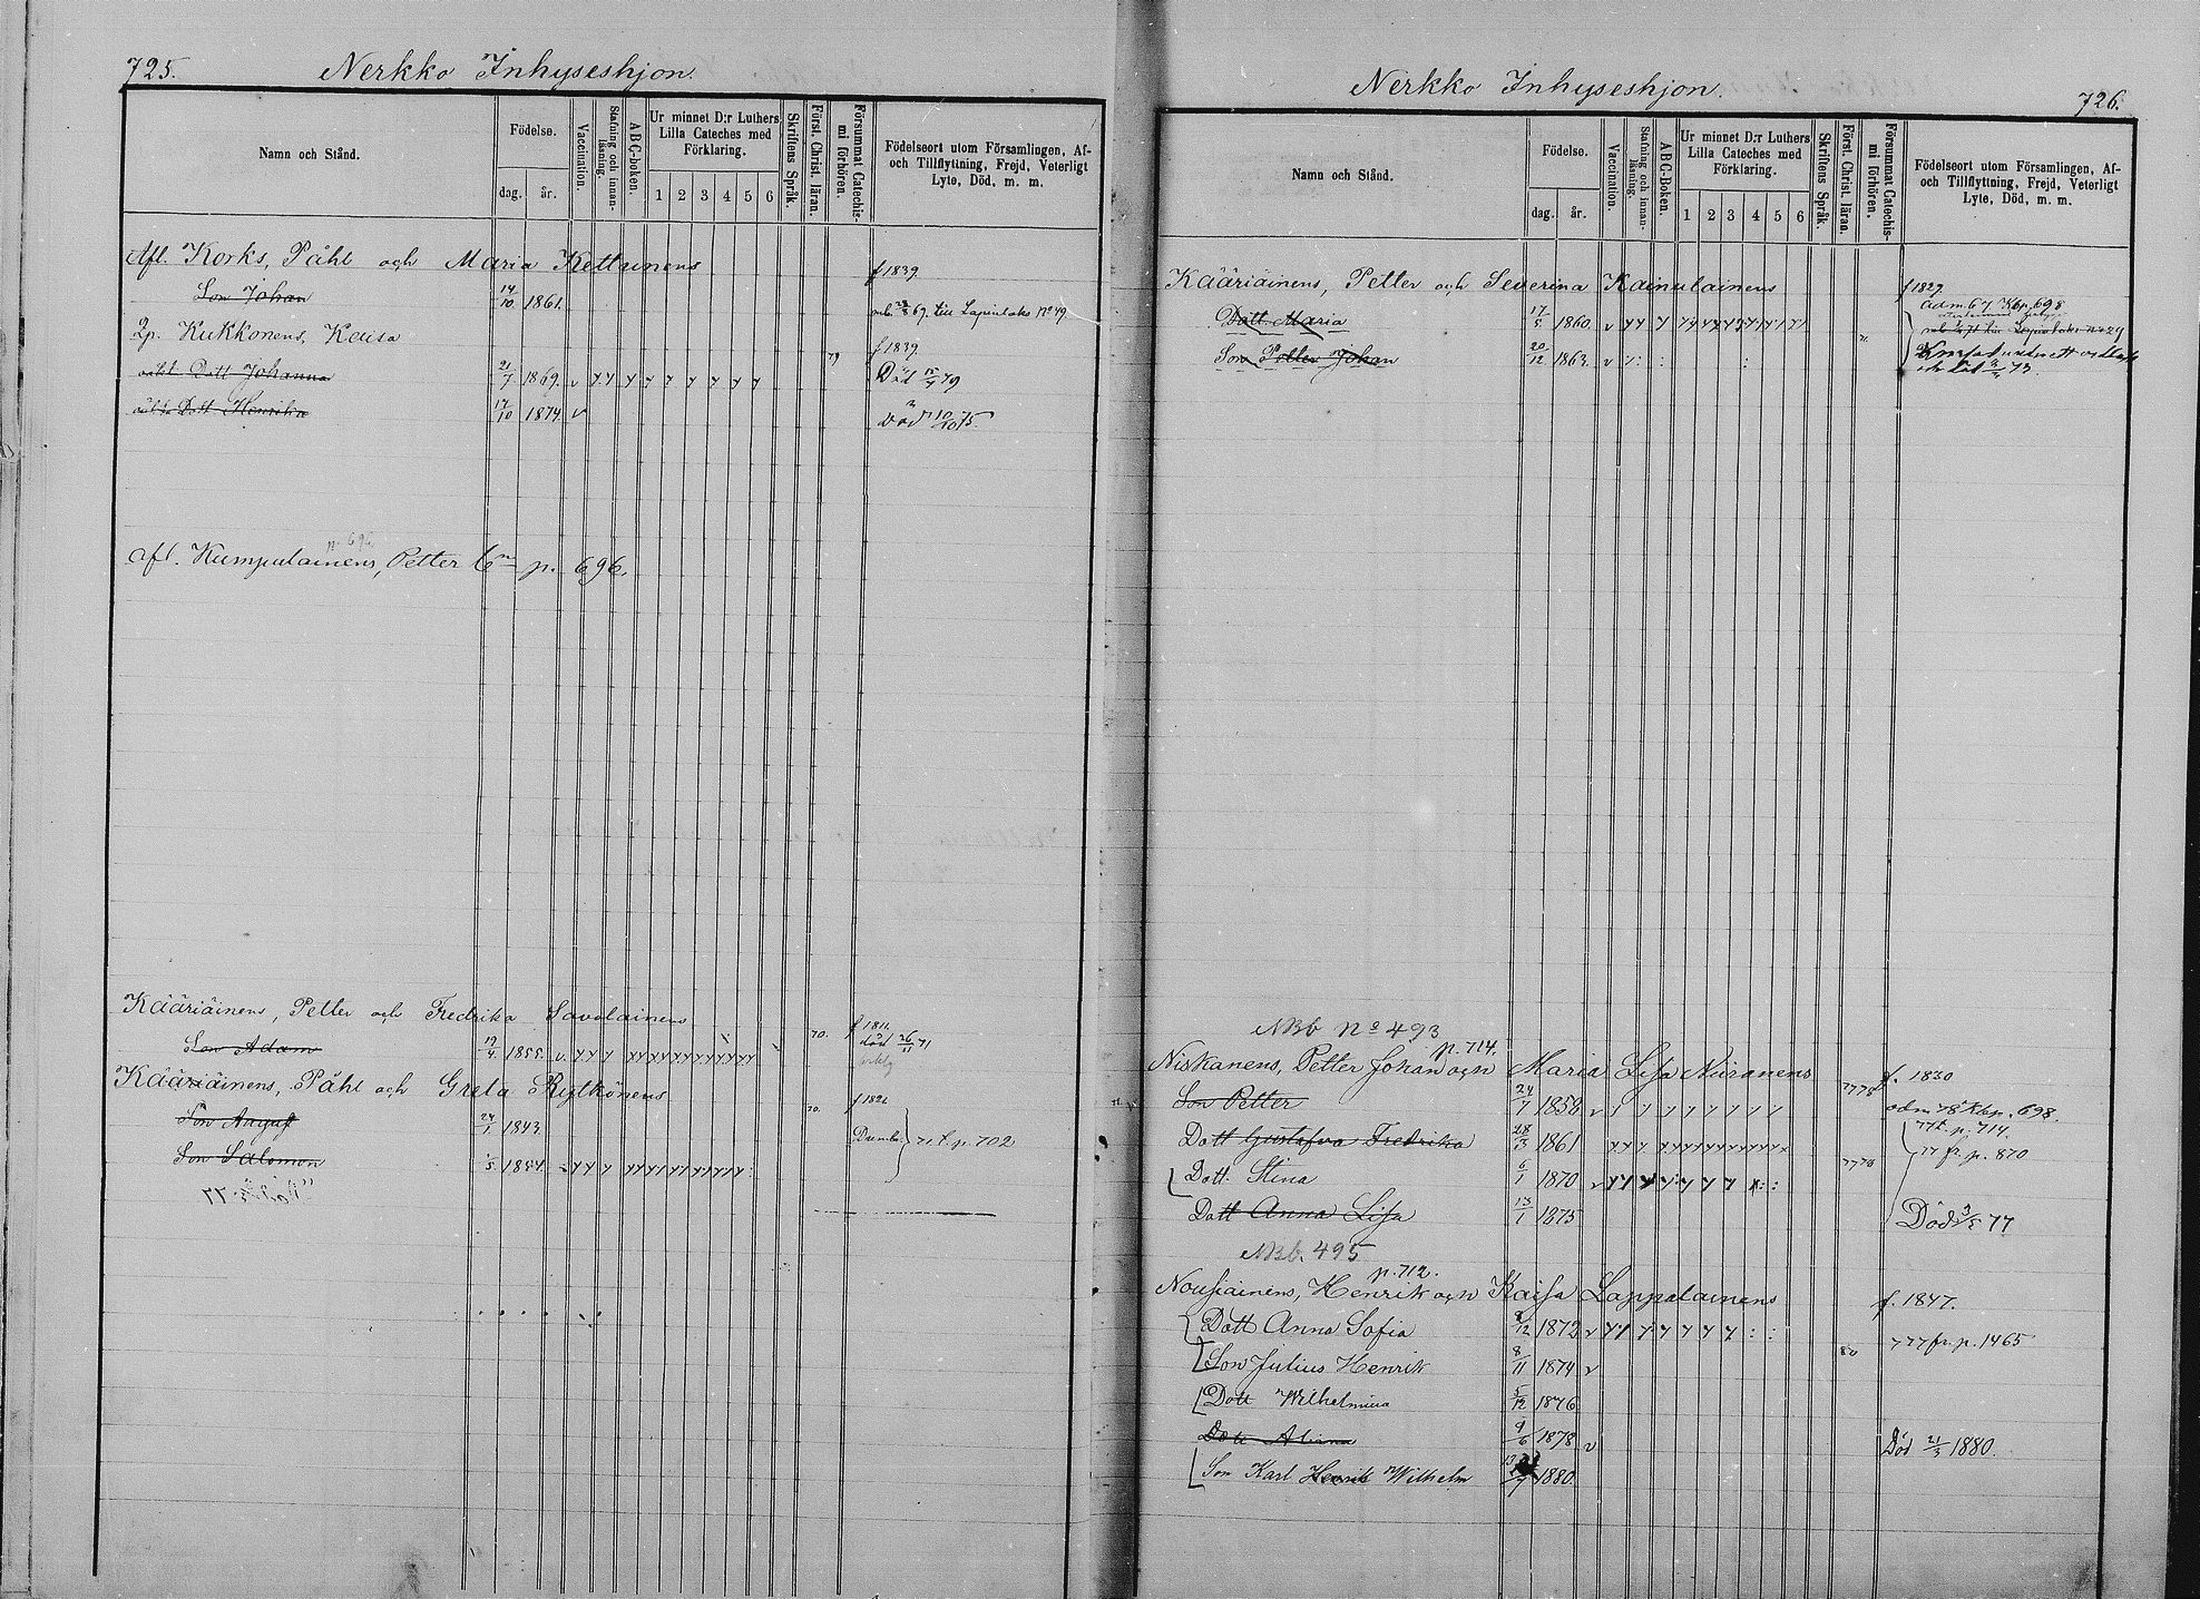 725.
Nerkko Inhyseshjon.
Namn och Stånd.
Födelse.
dag.
år.
Vaccination.
Stafning och innan-
läsning.
ABC-boken.
Ur minnet D:r Luthers
Lilla Cateches med
Förklaring.
1 2 3 4 5 6
Skriftens Språk.
Först. Christ. läran.
Försummat Catechis-
mi förhören.
Födelseort utom Församlingen, Af-
och Tillflyttning, Frejd, Veterligt
Lyte, Död, m. m.
Afl. Korks, Påhl och Maria Kettunens f 1839.
Son Johan 14/10 1861. till Lapinlaks No 49.
Kukkonens, f 1839.
Dott Johanna 21/7 1869. v 79 Död 15/4 79
Dott Henrika 17/10 1874 v Död 10/10 75.
p. 696
Afl. Kumpulainens, Petter p. 696.
Kääriäinens, Petter och Fredrika Savolainens f 1811.
Son Adam 19/4 1855. v. 70. död 26/11 71
Kääriäinens, Påhl och Greta Rytkönens f 1821
Son August 24/1 1843. 70.
Son Salomon 1854. t. p. 702
Nerkko Inhyseshjon.
726.
Namn och Stånd.
Födelse.
dag.
år.
Vaccination.
Stafning och innan-
läsning.
ABC-boken.
Ur minnet D:r Luthers
Lilla Cateches med
Förklaring.
1 2 3 4 5 6
Skriftens Språk.
Först. Christ. läran.
Försummat Catechis-
mi förhören.
Födelseort utom Församlingen, Af-
och Tillflyttning, Frejd, Veterligt
Lyte, Död, m. m.
Kääriäinens, Petter och Severina Kainulainens f 1829.
adm. 67 Kbp. 698
Dott. Maria 17/5 1860. v
Son Petter Johan 20/12 1863. v
NBb No 493
p. 714.
Niskanens, Petter Johan och Maria Lisa Niiranens f. 1830
Son Petter 24/7 1858 v adm 78 Kbp. 698.
Dott Gustafva Fredrika 28/3 1861 77 t. p. 714.
77 fr. p. 870
Dott. Stina 6/1 1870 v
Dott Anna Lisa 13/1 1875 Död 77
NBb. 495
p. 712.
Nousiainens, Henrik och Kaisa Lappalainens f. 1847.
Dott Anna Sofia 1872 v 77 fr. p. 1465
Son Julius Henrik 8/11 1874 v 80
Dott Wilhelmina 5/12 1876
Dott 9/6 1878 v Död 21/3 1880.
Son Karl Henrik Wilhelm 1880.